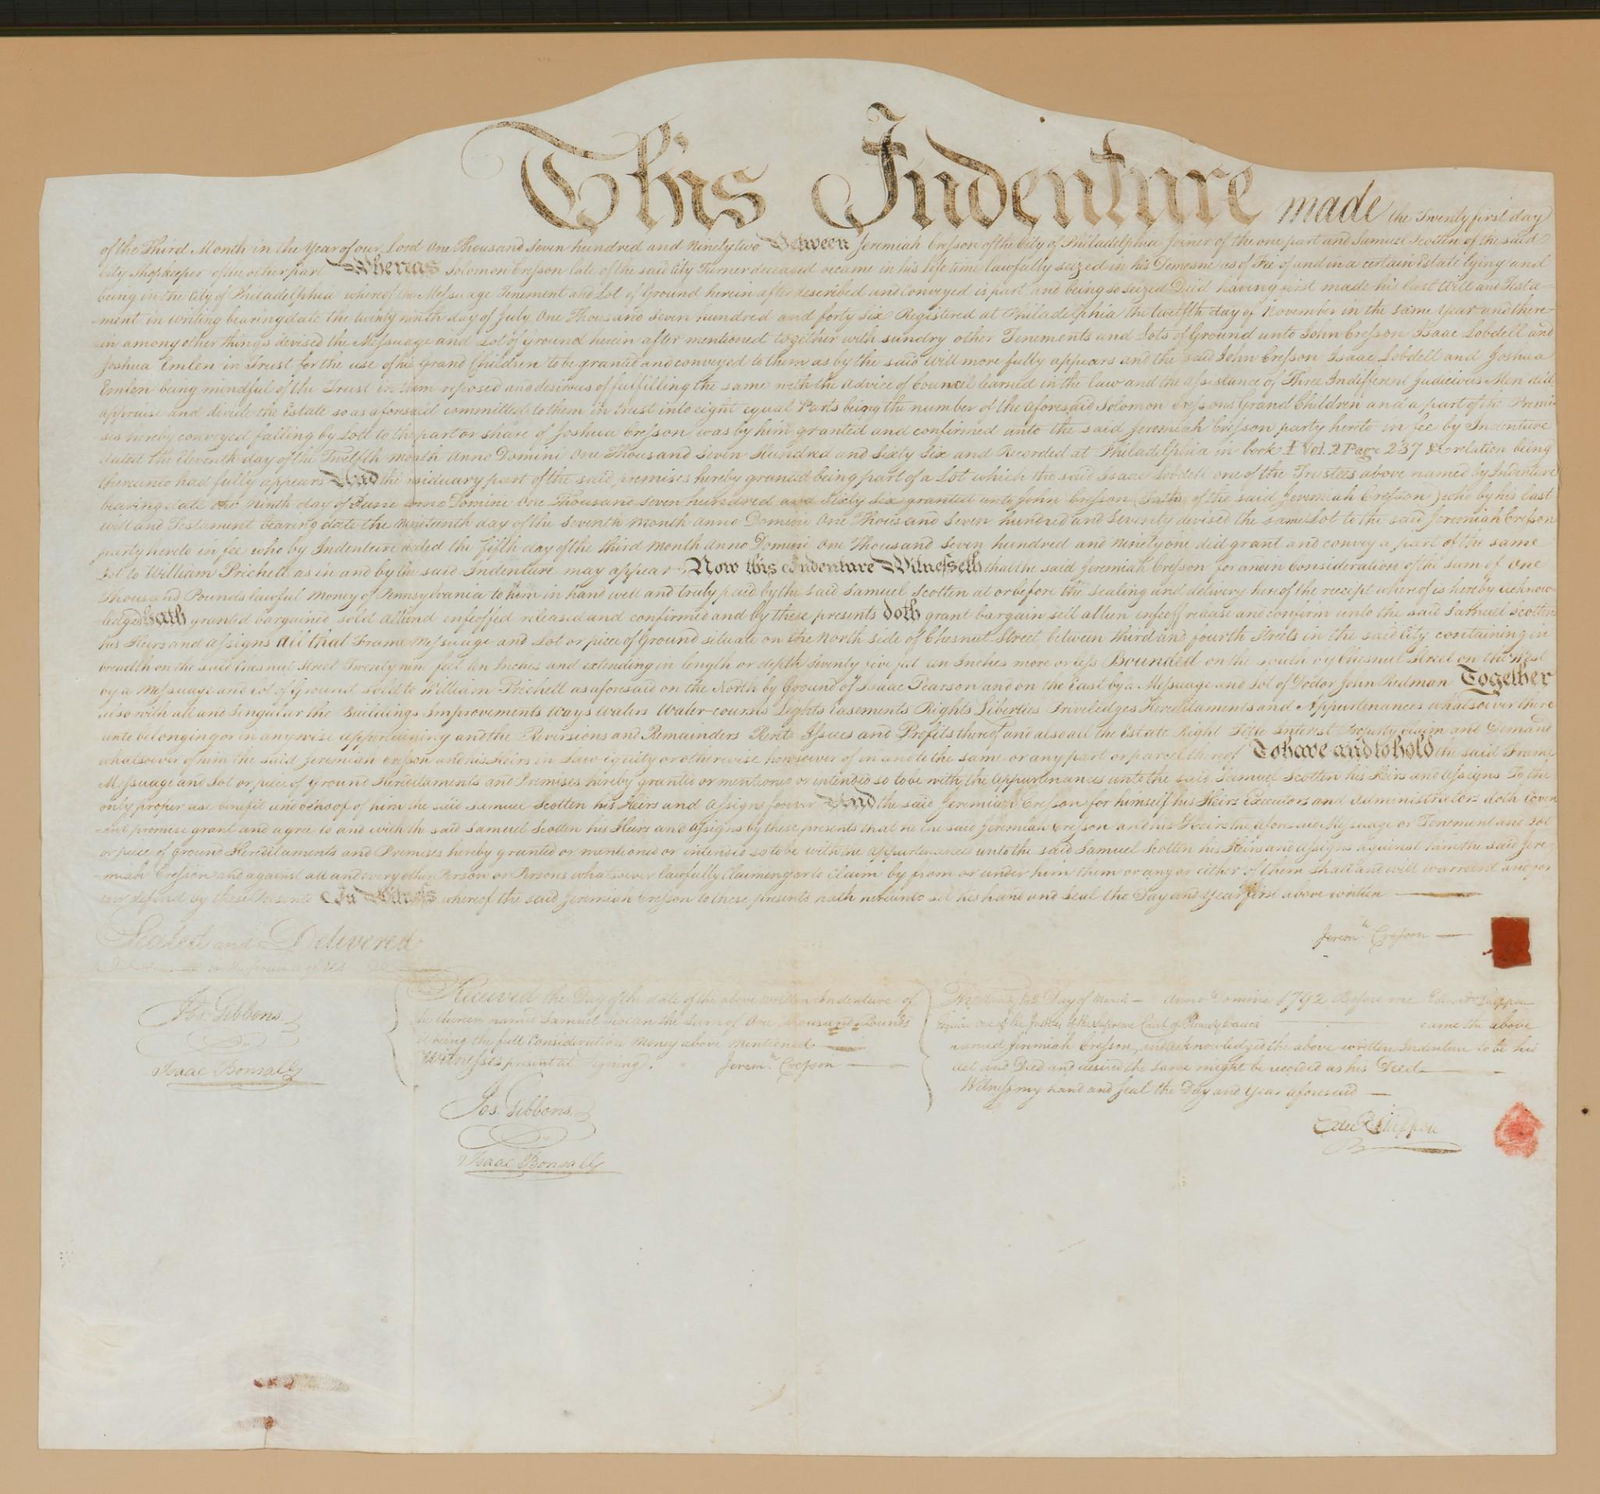 This Indenture made the Twenty first day
of the Third Month in the Year of our Lord One Thousand Seven hundred and Ninety two Between Jeremiah Cresson of the City of Philadelphia Joiner of the one part and Samuel Scotten of the said
City Shopkeeper of the other part Whereas Solomon Cresson late of the said City Turner deceased became in his life time lawfully seized in his Demesne as of Fee of and in a certain Estate lying and
being in the City of Philadelphia whereof the Messuage Tenement and Lot of Ground herein after described and conveyed is part and being so seized Did having first made his last Will and Testa-
ment in writing bearing date the twenty ninth day of July One Thousand Seven hundred and forty Six Registered at Philadelphia the twelfth day of November in the same Year and there-
in among other things devised the Messuage and Lot of ground herein after mentioned together with sundry other Tenements and Lots of Ground unto John Cresson Isaac Lobdell and
Joshua Emlen in Trust for the use of his Grand Children to be granted and conveyed to them as by the said will more fully appears and the said John Cresson Isaac Lobdell and Joshua
Emlen being mindful of the Trust in them reposed and desirous of fulfilling the same with the Advice of Council learned in the law and the assistance of Three Indifferent Judicious Men did
appraise and divide the Estate so as aforesaid committed to them in trust into eight equal Parts being the number of the aforesaid Solomon Cressons Grand Children and a part of the Premi-
ses hereby conveyed falling by Lott to the part or share of Joshua Cresson was by him granted and confirmed unto the said Jeremiah Cresson party hereto in fee by Indenture
dated the Eleventh day of the Twelfth month Anno Domini One Thousand Seven Hundred and Sixty Six and Recorded at Philadelphia in book I Vol. 2 Page 237 relation being
thereunto had fully appears And the residuary part of the said premises hereby granted being part of a Lot which the said Isaac Lobdell one of the Trustees above named by Indenture
bearing date the Ninth day of June Anno Domini One Thousand Seven hundred and Sixty Six granted unto John Cresson (Father of the said Jeremiah Cresson) who by his last
will and Testament bearing date the Nineteenth day of the Seventh Month Anno Domini One Thousand Seven hundred and Seventy devised the same Lot to the said Jeremiah Cresson
party hereto in fee who by Indenture dated the fifth day of the third Month Anno Domini One Thousand Seven hundred and Ninety one did grant and convey a part of the same
Lot to William Prichett as in and by the said Indenture may appear Now this Indenture Witnesseth that the said Jeremiah Cresson for and in Consideration of the sum of One
Thousand Pounds lawful Money of Pennsylvania to him in hand well and truly paid by the said Samuel Scotten at or before the Sealing and delivery hereof the receipt whereof is hereby acknow-
ledged hath granted bargained sold aliend enfeoffed released and confirmed and by these presents doth grant bargain sell alien enfeoff release and confirm unto the said Samuel Scotten
his Heirs and Assigns All that Frame Messuage and Lot or piece of Ground situate on the North side of Chesnut Street between third and fourth Streets in the said City containing in
breadth on the said Chesnut Street Twenty nine feet ten Inches and extending in length or depth Seventy five feet Inches more or less Bounded on the south by Chesnut Street on the West
by a Messuage and Lot of Ground sold to William Prichett as aforesaid on the North by Ground of Isaac Pearson and on the East by a Messuage and Lot of Doctor John Redman Together
also with all and singular the Buildings Improvements Ways Waters Water-courses Lights Easements Rights Liberties Priviledges Hereditaments and Appurtenances whatsoever there
unto belonging or in any wise appertaining and the Reversions and Remainders Rents Issues and Profits thereof and also all the Estate Right Title Interest Property claim and Demand
whatsoever of him the said Jeremiah Cresson and his Heirs in Law equity or otherwise howsoever of in and to the same or any part or parcel thereof To have and to hold the said Frame
Messuage and Lot or piece of ground Hereditaments and Premises hereby granted or mentioned or intended so to be with the Appurtenances unto the said Samuel Scotten his Heirs and Assigns To the
only proper use benefit and behoof of him the said Samuel Scotten his Heirs and Assigns forever And the said Jeremiah Cresson for himself his Heirs Executors and Administrators doth Coven
ant promise grant and agree to and with the said Samuel Scotten his Heirs and Assigns by these presents that he the said Jeremiah Cresson and his Heirs the aforesaid Messuage or Tenement and Lot
or piece of ground Hereditaments and Premises hereby granted or mentioned or intended so to be with the appurtenances unto the said Samuel Scotten his Heirs and assigns against him the said Jere-
miah Cresson and against all and every other Person or Persons whatsoever lawfully Claiming or to Claim by from or under him them or any or either of them shall and will warrant and for
ever defend by these Presents In Witness whereof the said Jeremiah Cresson to these presents hath hereunto set his hand and Seal the Day and Year first above written
Jerem.h Cresson
Sealed and Delivered
in the presence of us
Jos. Gibbons
Isaac Bonsall
Received the Day of the date of the above written Indenture of
the therein named Samuel Scotten the Sum of One Thousand Pounds
it being the full Consideration Money above Mentioned
Witnesses present at Signing
Jerem.h Cresson
Jos. Gibbons
Isaac Bonsall
Day of March Anno Domini 1792 Before me Edward Shippen
Esquire one of the Justices of the Supreme Court of Pennsylvania came the above
named Jeremiah Cresson and acknowledged the above written Indenture to be his
act and Deed and desired the same might be recorded as his Deed
Witness my hand and Seal the Day and Year aforesaid
Edw.d Shippen